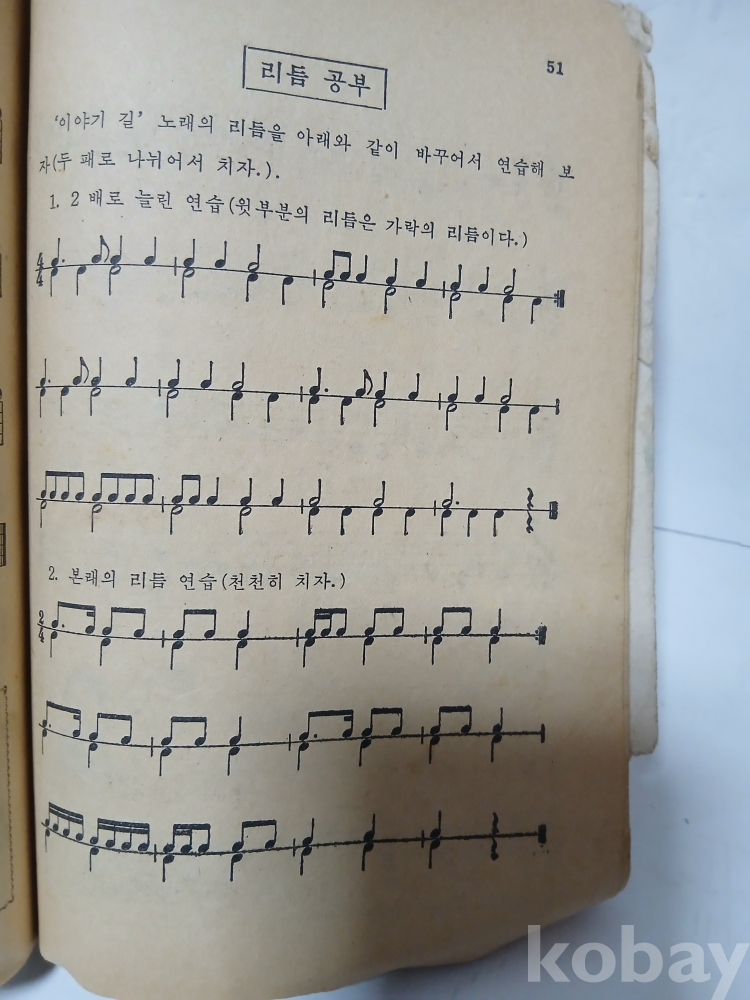 51
리듬 공부
‘이야기 길’ 노래의 리듬을 아래와 같이 바꾸어서 연습해 보
자(두 패로 나뉘어서 치자.).
1. 2배로 늘린 연습(윗부분의 리듬은 가락의 리듬이다.)
4
4
2. 본래의 리듬 연습(천천히 치자.)
2
4
kobay